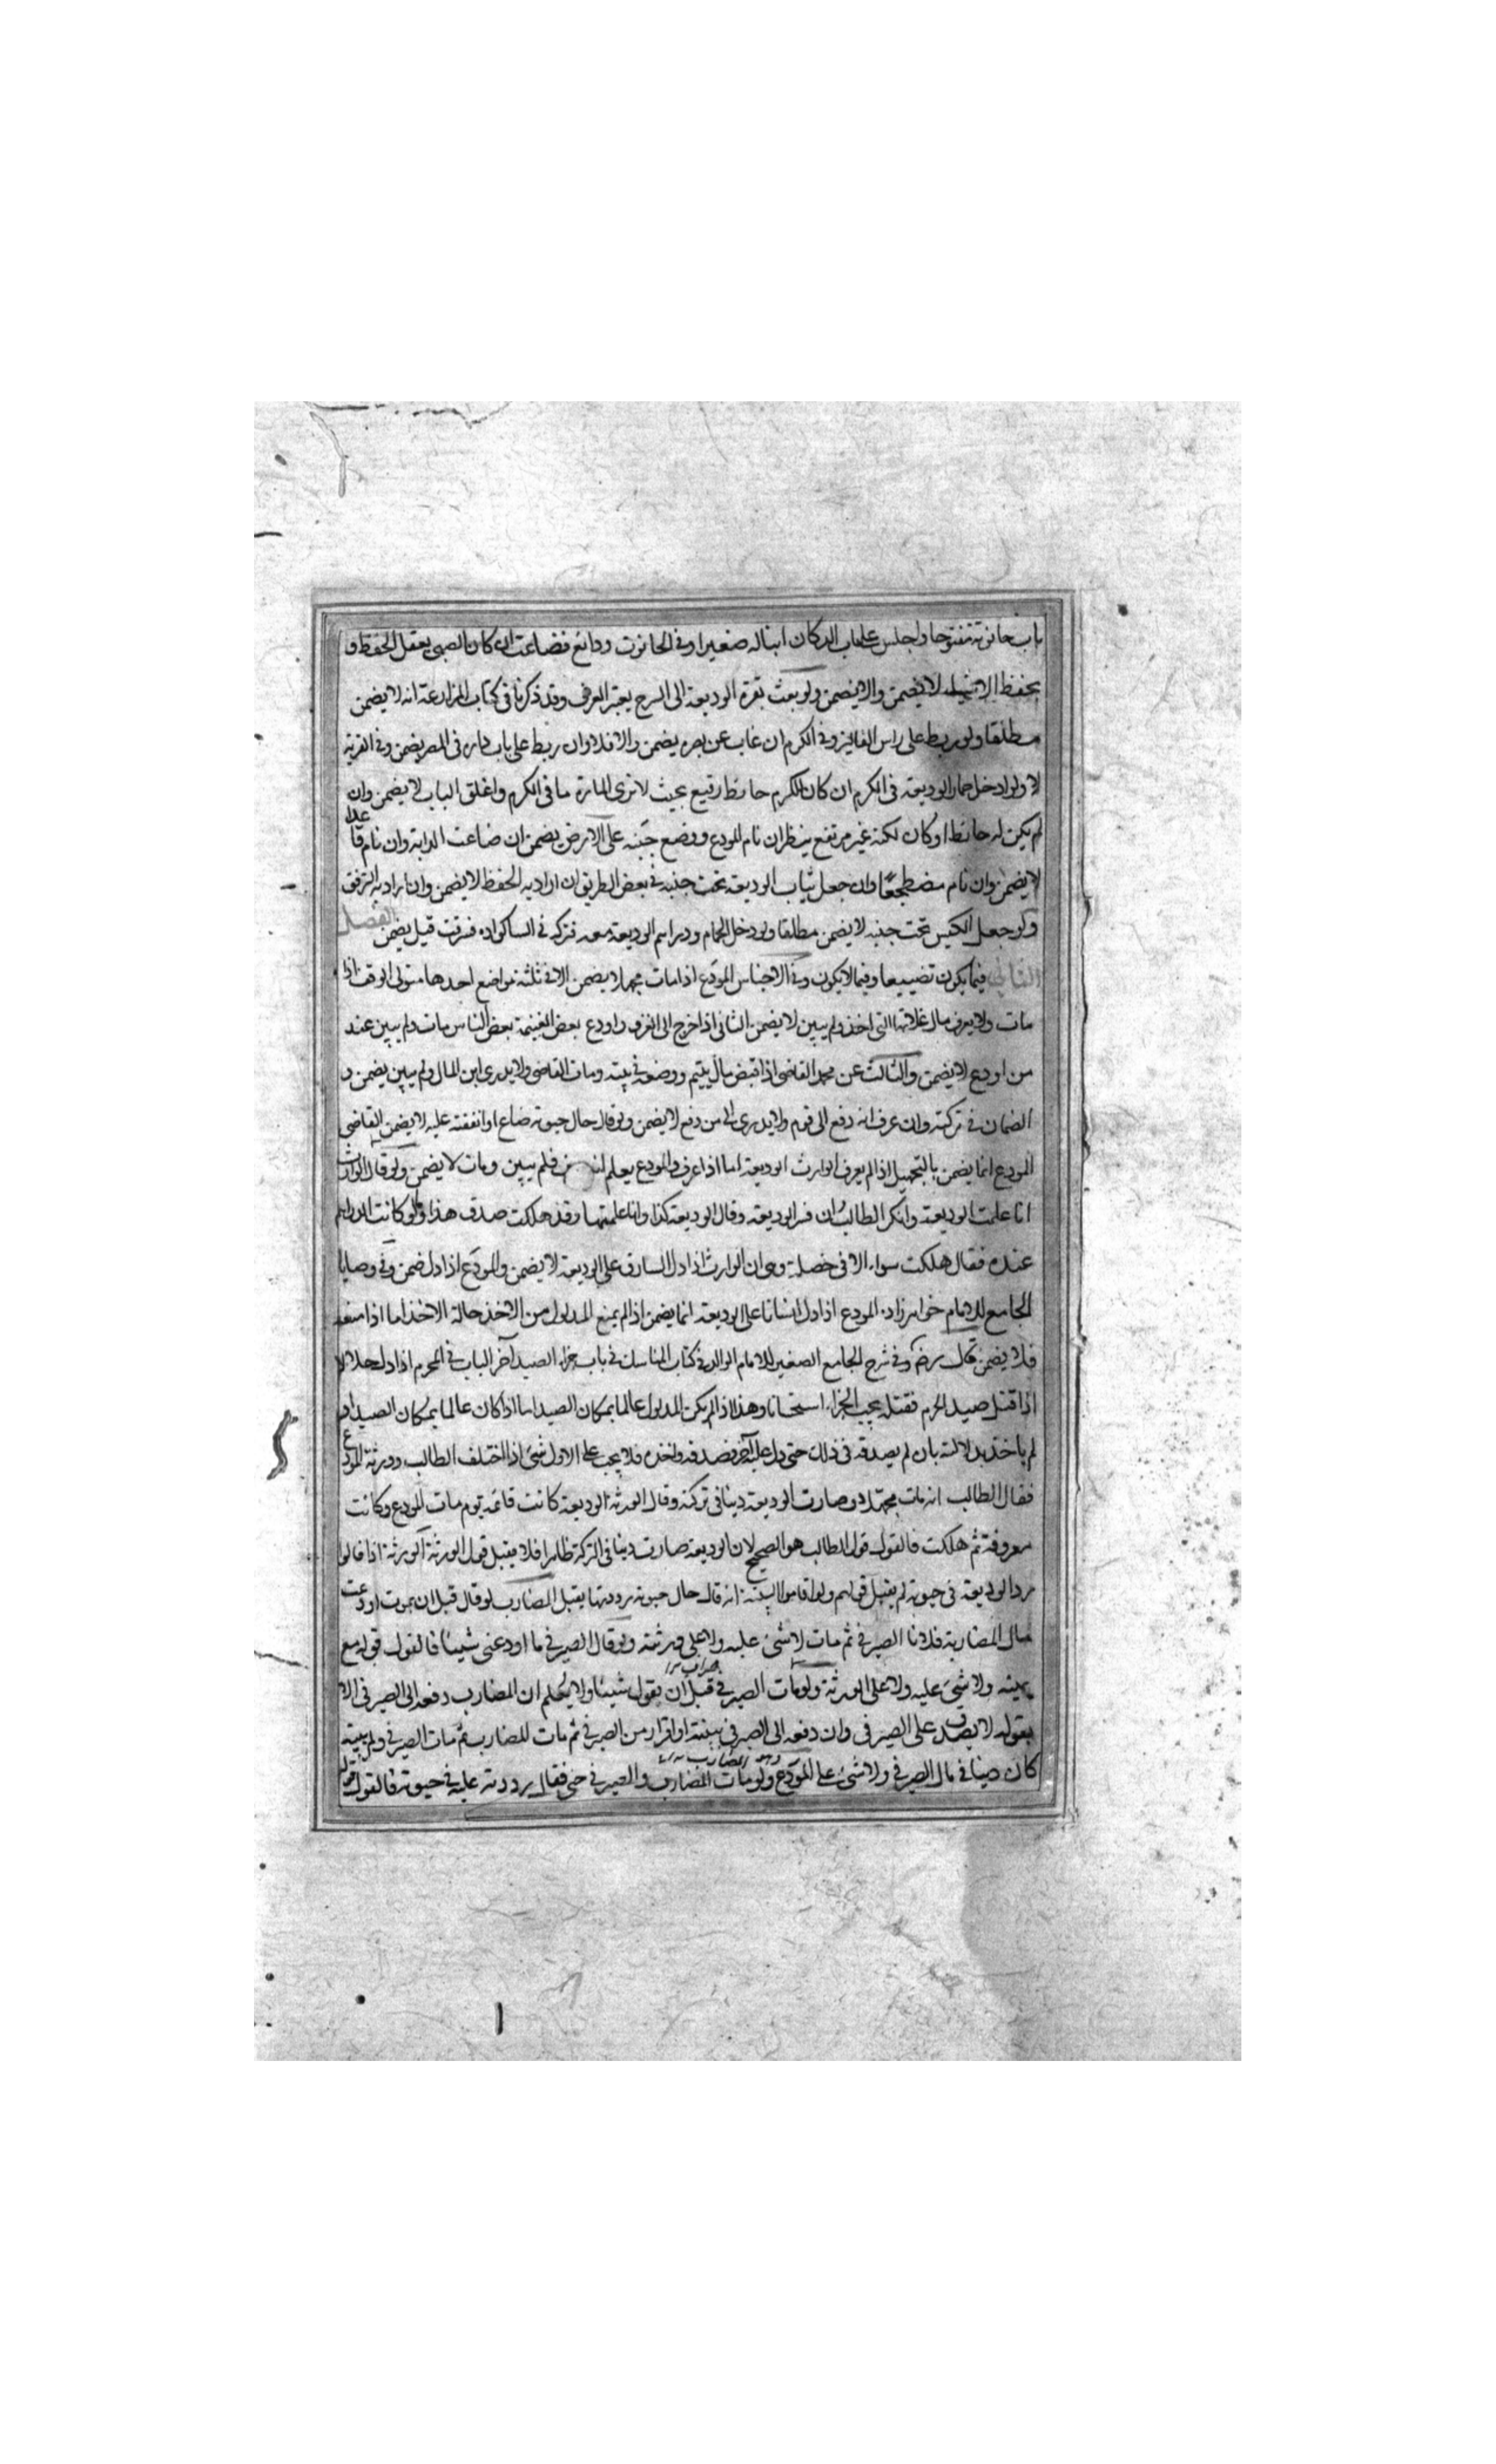 باب حانوته مفتوحا واجلس على باب الدكان ابنا له صغيرا وفى الحانوت ودائع فضاعت ان كان الصبى يعقل الحفظ و
يحفظ الاشياء لا يضمن والا يضمن ولو بعث بقرة الوديعة الى السرح يعتبر العرف وقد ذكرنا فى كتاب المزارعة انه لا يضمن
مطلقا ولو ربط على راس الفاليز وفى الكرم ان غاب عن بصره يضمن والا فلا وان ربط على باب داره فى المصر يضمن وفى القرية
لا ولو ادخل حمار الوديعة فى الكرم ان كان للكرم حائط رفيع بحيث لا ترى المارة ما فى الكرم واغلق الباب لا يضمن وان
لم يكن له حائط او كان لكنه غير مرتفع ينظر ان نام المودع ووضع جنبه على الارض يضمن ان ضاعت الدابة وان نام قاعدا
لا يضمن وان نام مضطجعا وان جعل ثياب الوديعة تحت جنبه فى بعض الطريق ان اراد به الحفظ لا يضمن وان اراد به الترفق
ولو جعل الكيس تحت جنبه لا يضمن مطلقا ولو دخل الحمام ودراهم الوديعة معه فتركه فى الساكواده فسرقت قيل يضمن الفصل
الثانى فيما يكون تضييعا وفيما لا يكون وفى الاجناس المودع اذا مات مجهلا يضمن الا فى ثلثة مواضع احدها متولى الوقف اذا
مات ولا يعرف مال غلاتها التى اخذ ولم يبين لا يضمن الثانى اذا خرج الى الغزو واودع بعض الغنيمة بعض الناس مات ولم يبين عند
من اودع لا يضمن والثالث عن محمد القاضى اذا قبض مال يتيم ووضعه فى بيته ومات القاضى ولا يدرى اين المال ولم يبين يضمن و
الضمان فى تركته وان عرف انه دفع الى قوم ولا يدرى الى من دفع لا يضمن ولو قال حال حيوته ضاع او انفقته عليه لا يضمن القاضى
المودع انما يضمن بالتجهيل اذا لم يعرف الوارث الوديعة اما اذا عرف والمودع يعلم انه فلم يبين ومات لا يضمن ولو قال الوارث
انا علمت الوديعة وانكر الطالب ان فسر الوديعة وقال الوديعة كذا وانا علمتها وقد هلكت صدق هذا ولو كانت الدراهم
عنده فقال هلكت سواء الا فى خصلة وهى ان الوارث اذا دل السارق على الوديعة لا يضمن والمودع اذا دل ضمن وفى وصايا
الجامع للامام خواهرزاده المودع اذا دل انسانا على الوديعة انما يضمن اذا لم يمنع المدلول من الاخذ حالة الاخذ اما اذا منعه
فلا يضمن قال رضه وفى شرح الجامع الصغير للامام الوالد فى كتاب المناسك فى باب جزاء الصيد آخر الباب فى المحرم اذا دل حلالا
اذا قتل صيد الحرم فقتله يجب الجزاء استحسانا وهذا اذا لم يكن المدلول عالما بمكان الصيد اما اذا كان عالما بمكان الصيد او
لم ياخذ بدلالته بان لم يصدقه فى ذلك حتى دل عليه آخر فصدقه واخذه فلا يجب على الاول شئ اذا اختلف الطالب وورثة المودع
فقال الطالب انه مات مجهلا وصارت الوديعة دينا فى تركته وقال الورثة الوديعة كانت قائمة يوم مات المودع وكانت
معروفة ثم هلكت فالقول قول الطالب هو الصحيح لان الوديعة صارت دينا فى التركة ظاهرا فلا يقبل قول الورثة الورثة اذا قالوا
رد الوديعة فى حيوته لم يقبل قولهم ولو اقاموا البينة انه قال حال حيوته رددتها يقبل المضارب لو قال قبل ان يموت اودعت
مال المضاربة فلانا الصيرفى ثم مات لا شئ عليه ولا على ورثته ولو قال الصيرفى ما اودعنى شيئا فالقول قوله مع
يمينه ولا شئ عليه ولا على الورثة ولو مات الصيرفى قبل ان يقول شيئا ولا يعلم ان المضارب دفعه الى الصيرفى الا
بقوله لا يصدق على الصيرفى وان دفعه الى الصيرفى ببينة او اقرار من الصيرفى ثم مات المضارب ثم مات الصيرفى ولم يبينه
كان دينا فى مال الصيرفى ولا شئ على المودع ولو مات المضارب والصيرفى حى فقال رددته عليه فى حيوته فالقول قوله